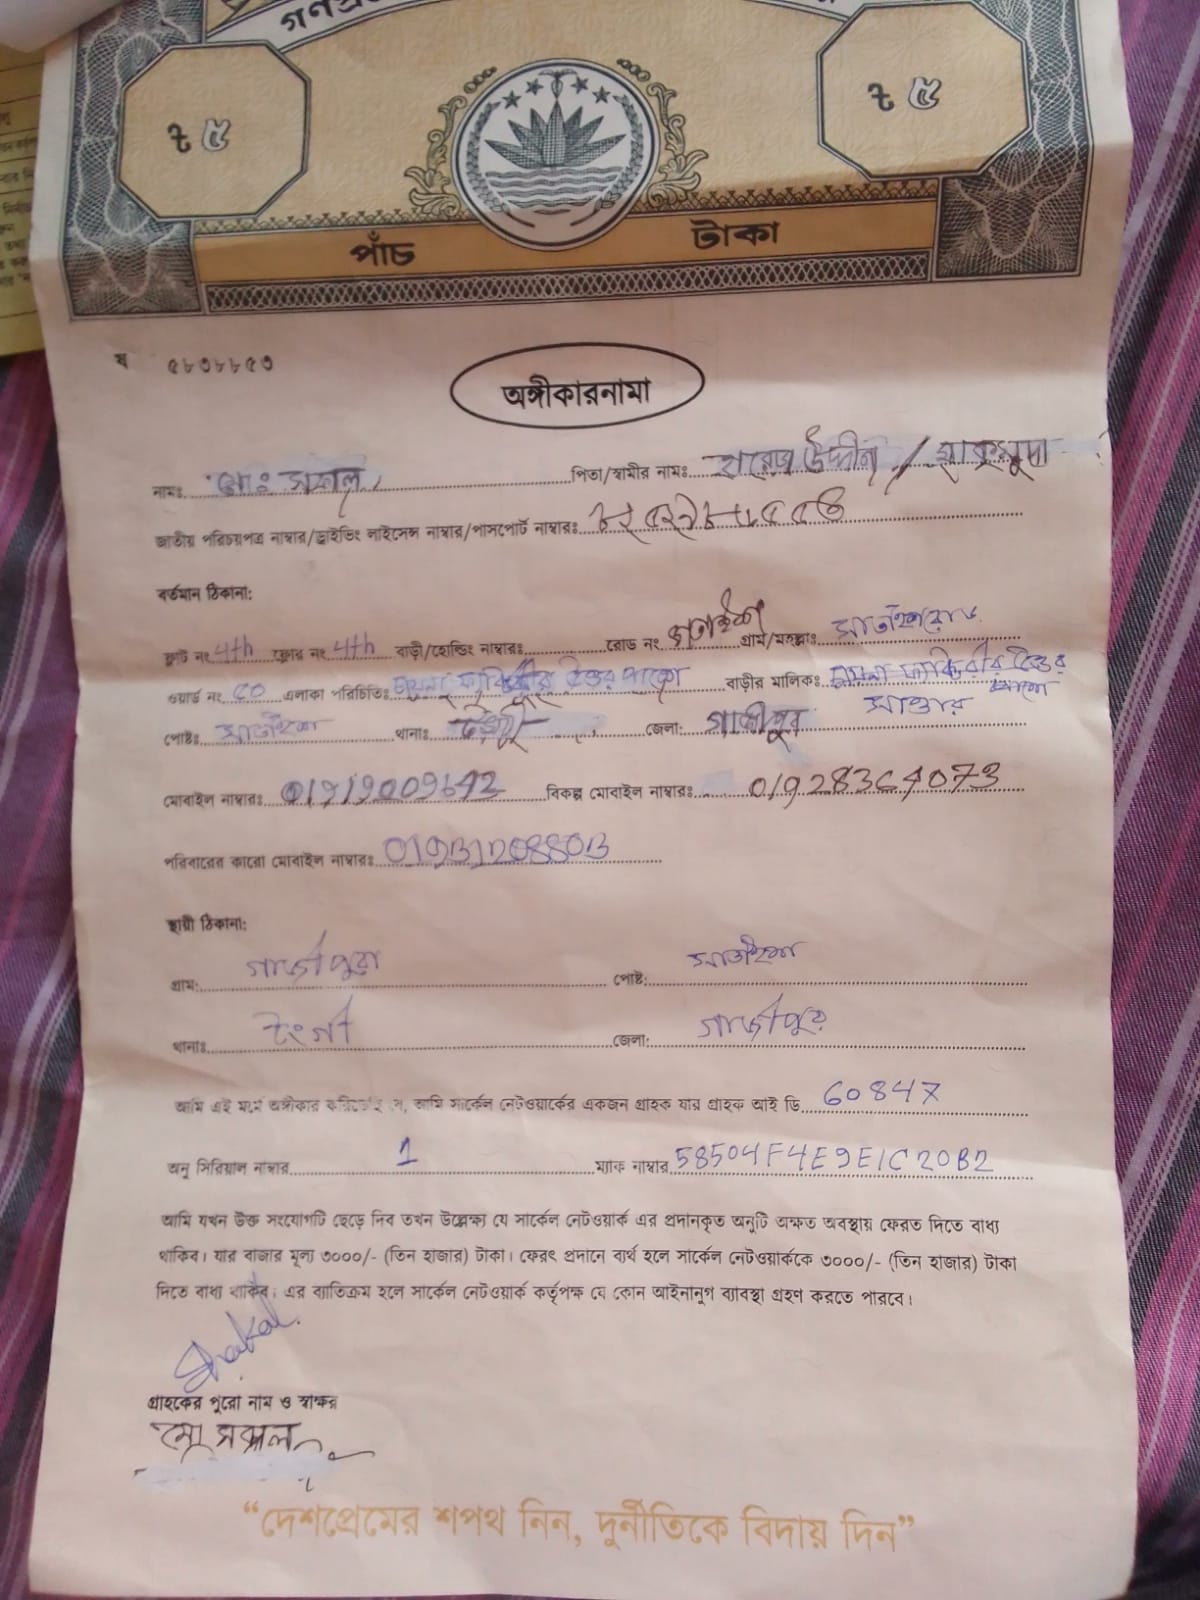 ৳ ৫
৳ ৫
পাঁচ টাকা
ষ ৫৮৩৮৮৫৩
অঙ্গীকারনামা
নামঃ মোঃ সকাল পিতা/স্বামীর নামঃ হারেজ উদ্দীন /
জাতীয় পরিচয়পত্র নাম্বার/ড্রাইভিং লাইসেন্স নাম্বার/পাসপোর্ট নাম্বারঃ
বর্তমান ঠিকানা:
ফ্লাট নং 4th ফ্লোর নং 4th বাড়ী/হোল্ডিং নাম্বারঃ রোড নং গ্রাম/মহল্লাঃ সাতাইশ রোড
ওয়ার্ড নং ৫০ এলাকা পরিচিতিঃ বাড়ীর মালিকঃ
সাত্তার
পোষ্টঃ সাতাইশ থানাঃ টঙ্গী জেলা: গাজীপুর
মোবাইল নাম্বারঃ 01919009642 বিকল্প মোবাইল নাম্বারঃ
পরিবারের কারো মোবাইল নাম্বারঃ
স্থায়ী ঠিকানা:
গ্রাম: গাজীপুরা পোষ্ট: সাতাইশ
থানাঃ টংগী জেলা: গাজীপুর
আমি এই মর্মে অঙ্গীকার করিতেছি যে, আমি সার্কেল নেটওয়ার্কের একজন গ্রাহক যার গ্রাহক আই ডি 60847
অনু সিরিয়াল নাম্বার 1 ম্যাক নাম্বার 58504F4E9E1C20B2
আমি যখন উক্ত সংযোগটি ছেড়ে দিব তখন উল্লেক্ষ্য যে সার্কেল নেটওয়ার্ক এর প্রদানকৃত অনুটি অক্ষত অবস্থায় ফেরত দিতে বাধ্য
থাকিব। যার বাজার মূল্য ৩০০০/- (তিন হাজার) টাকা। ফেরৎ প্রদানে ব্যর্থ হলে সার্কেল নেটওয়ার্ককে ৩০০০/- (তিন হাজার) টাকা
দিতে বাধ্য থাকিব। এর ব্যতিক্রম হলে সার্কেল নেটওয়ার্ক কর্তৃপক্ষ যে কোন আইনানুগ ব্যাবস্থা গ্রহণ করতে পারবে।
Shakal
গ্রাহকের পুরো নাম ও স্বাক্ষর
মোঃ সকাল
“দেশপ্রেমের শপথ নিন, দুর্নীতিকে বিদায় দিন”